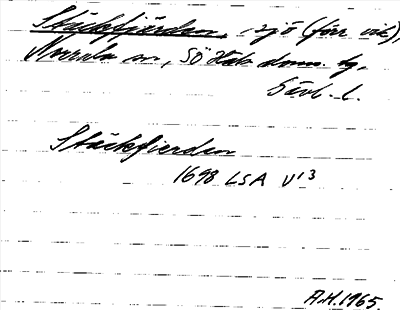 Stäckfjärden, sjö (förr vik),
Norrala sn, Sö Häls. doms. tg,
Gävl. l.
Stäckfierden
1698 LSA V¹3
A.H. 1965.